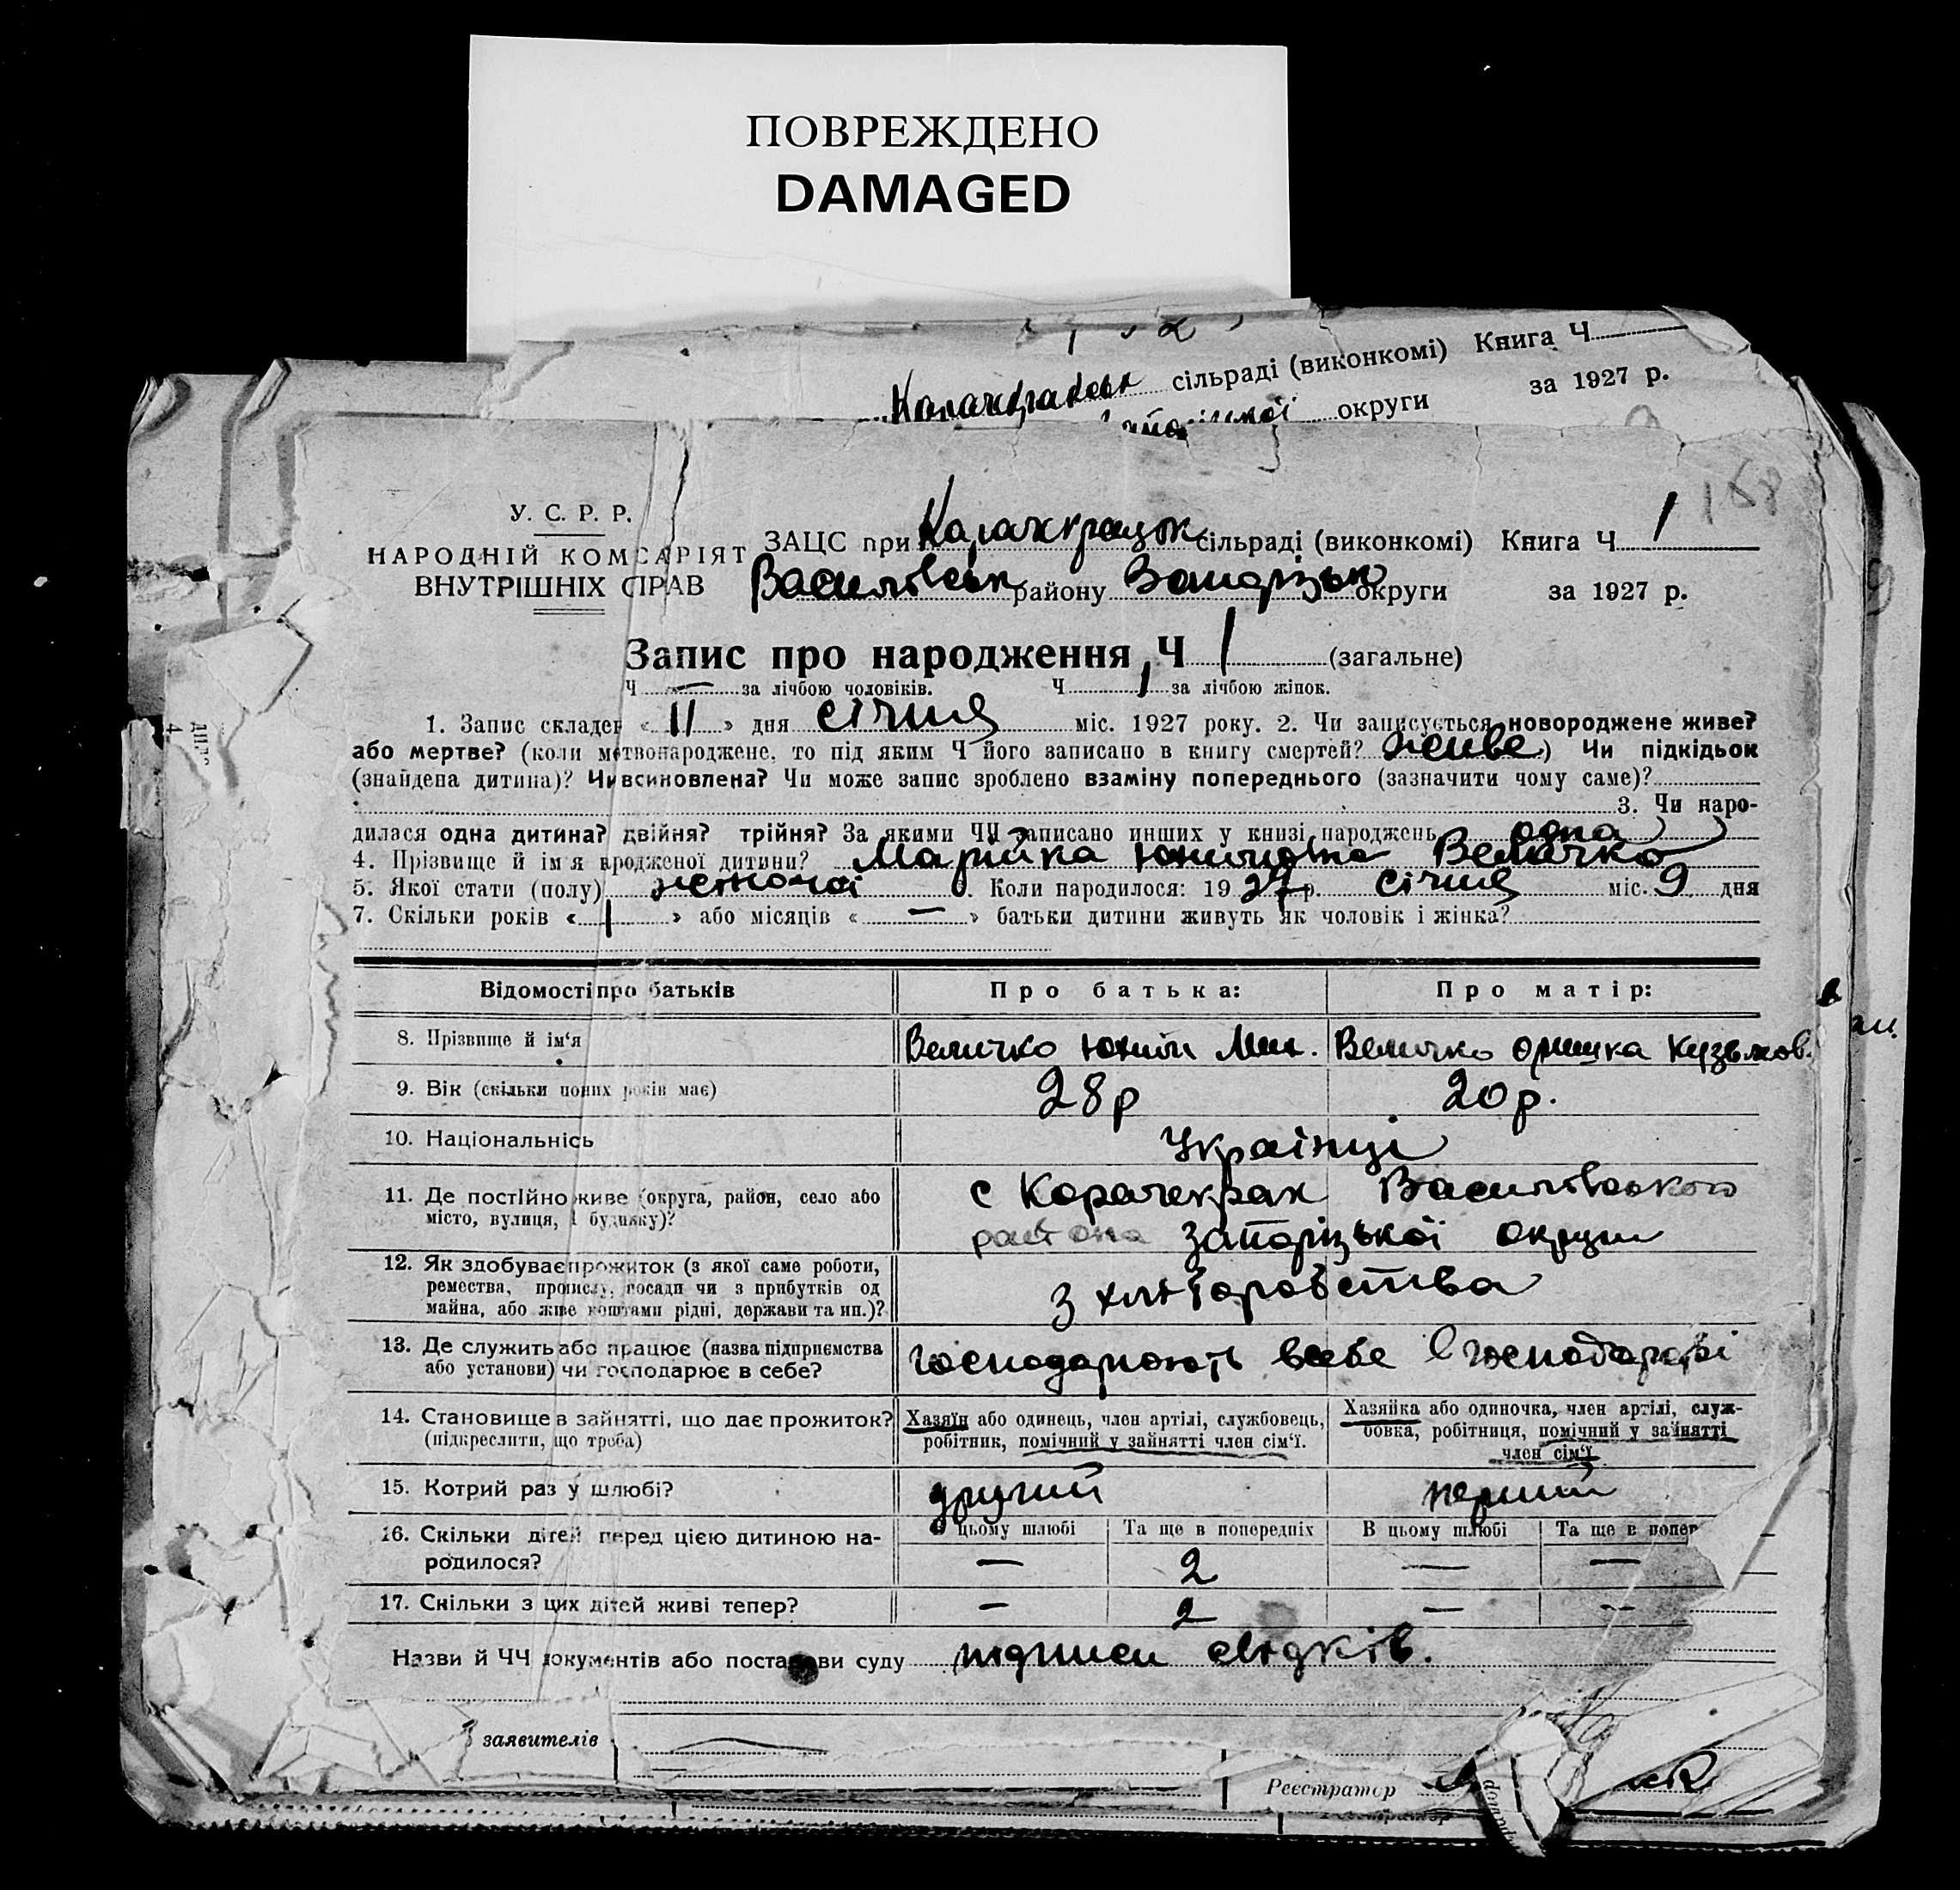 ПОВРЕЖДЕНО
DAMAGED
сільраді (виконкомі) Книга Ч
округи за 1927 р.
168
У. С. Р. Р.
НАРОДНІЙ КОМСАРІЯТ
ВНУТРІШНІХ СПРАВ
ЗАЦС при сільраді (виконкомі) Книга Ч 1
Василівськ району Запорізьк округи за 1927 р.
Запис про народження Ч 1 (загальне)
Ч — за лічбою чоловіків. Ч 1 за лічбою жінок.
1. Запис складен « 11 » дня січня міс. 1927 року. 2. Чи записується новороджене живе?
або мертве? (коли мертвонароджене, то під яким Ч його записано в книгу смертей? живе) Чи підкідьок
(знайдена дитина)? Чи всиновлена? Чи може запис зроблено взаміну попереднього (зазначити чому саме)?
3. Чи наро-
дилася одна дитина? двійня? трійня? За якими ЧЧ записано инших у книзі народжень одна
4. Прізвище й ім'я вродженої дитини? Марійка Юхимовна Величко
5. Якої стати (полу) жіночої. Коли народилося: 19 27 р. січня міс. 9 дня
7. Скільки років « 1 » або місяців « — » батьки дитини живуть як чоловік і жінка?
Відомості про батьків Про батька: Про матір:
8. Прізвище й ім'я Величко Юхим Мих. Величко Оришка Кузьмов.
9. Вік (скільки повних років має) 28р 20р.
10. Національнісь Українці
11. Де постійно живе (округа, район, село або
місто, вулиця, і будинку)?
с Карачекрак Василівського
района Запорізької округи
12. Як здобуває прожиток (з якої саме роботи,
ремества, промислу, посади чи з прибутків од
майна, або живе коштами рідні, держави та ин.)?
з хліборобства
13. Де служить або працює (назва підприємства
або установи) чи господарює в себе?
господарюють всебе в господарстві
14. Становище в зайнятті, що дає прожиток?
(підкреслити, що треба)
Хазяїн або одинець, член артілі, службовець,
робітник, помічний у зайнятті член сім'ї.
Хазяйка або одиночка, член артілі, служ-
бовка, робітниця, помічний у зайнятті
член сім'ї
15. Котрий раз у шлюбі? другий перший
16. Скільки дітей перед цією дитиною на-
родилося?
В цьому шлюбі Та ще в попередніх В цьому шлюбі Та ще в попер
— 2 — —
17. Скільки з цих дітей живі тепер? — 2 — —
Назви й ЧЧ документів або постанови суду підписи свідків.
заявителів
Реєстратор